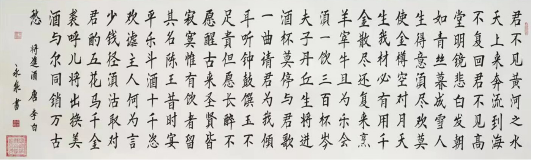 君不见黄河之水
天上来奔流到海
不复回君不见高
堂明镜悲白发朝
如青丝暮成雪人
生得意须尽欢莫
使金樽空对月天
生我材必有用千
金散尽还复来烹
羊宰牛且为乐会
须一饮三百杯岑
夫子丹丘生将进
酒杯莫停与君歌
一曲请君为我倾
耳听钟鼓馔玉不
足贵但愿长醉不
愿醒古来圣贤皆
寂寞惟有饮者留
其名陈王昔时宴
平乐斗酒十千恣
欢谑主人何为言
少钱径须沽取对
君酌五花马千金
裘呼儿将出换美
酒与尔同销万古
愁
将进酒 唐 李白
永泉书